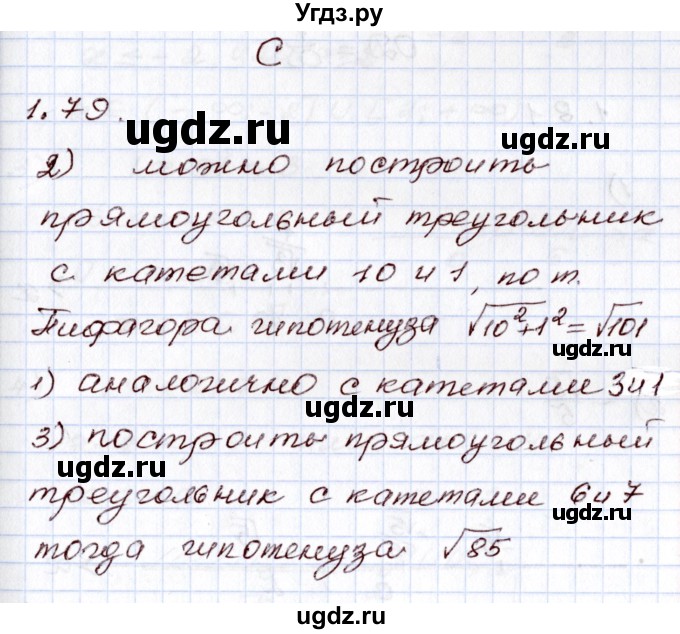 Угдз.ру
С
1.79.
ugdz.ru
2) можно построить
прямоугольный треугольник
ugdz.ru
с катетами 10 и 1, по т.
Пифагора гипотенуза √10²+1² = √101
ugdz.ru
1) аналогично с катетами 3 и 1
ugdz.ru
3) построить прямоугольный
ugdz.ru
треугольник с катетами 6 и 7
ugdz.ru
тогда гипотенуза √85
ugdz.ru
ugdz.ru